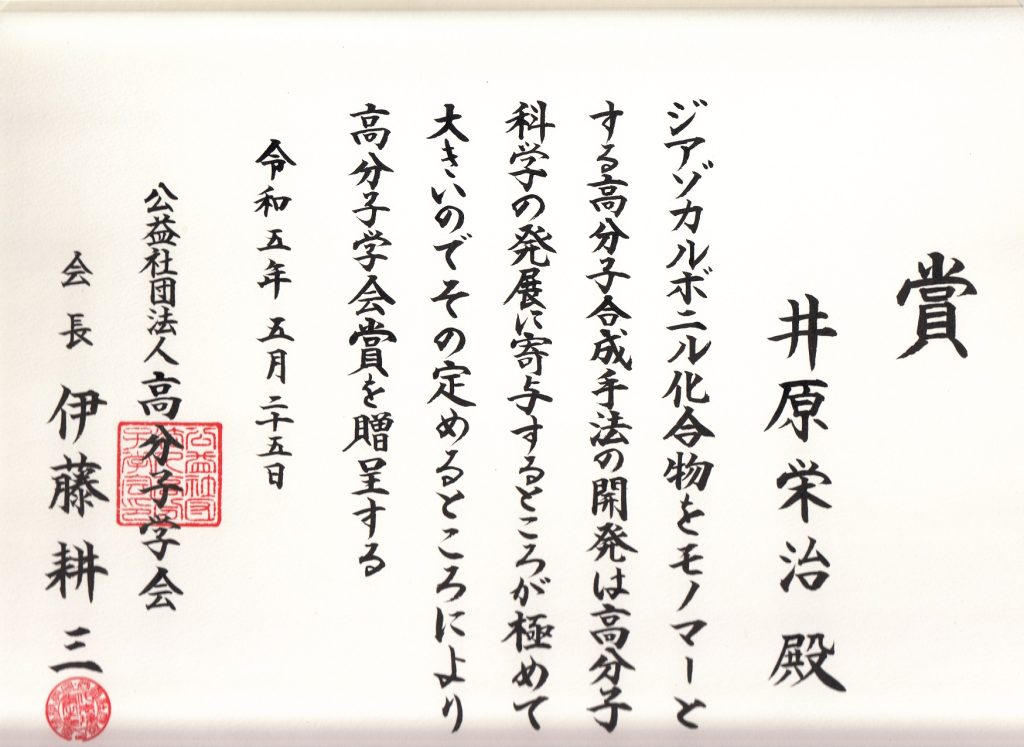 賞
井原栄治殿
ジアゾカルボニル化合物をモノマーと
する高分子合成手法の開発は高分子
科学の発展に寄与するところが極めて
大きいのでその定めるところにより
高分子学会賞を贈呈する
令和五年五月二十五日
公益社団法人高分子学会
会長 伊藤耕三